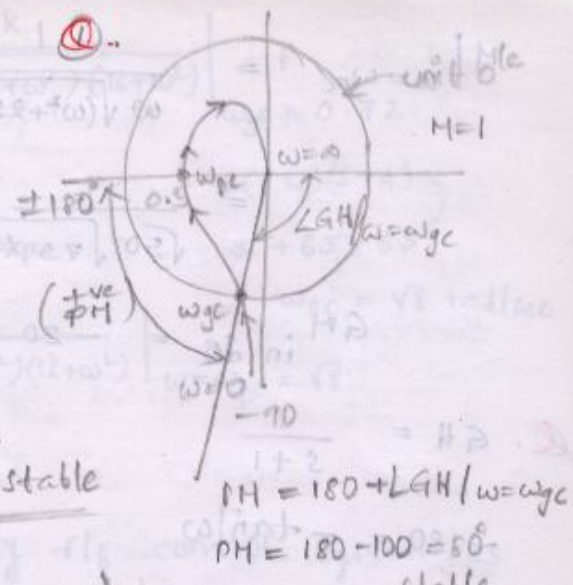 ①..
unit 0ˡᵉ
M=1
ω=∞
±180°
0.5
ωpc
∠GH/ω=ωgc
(+ve PM)
ωgc
ω=0
-90
stable
PM = 180 + ∠GH/ω=ωgc
PM = 180 - 100 = 80°
stable